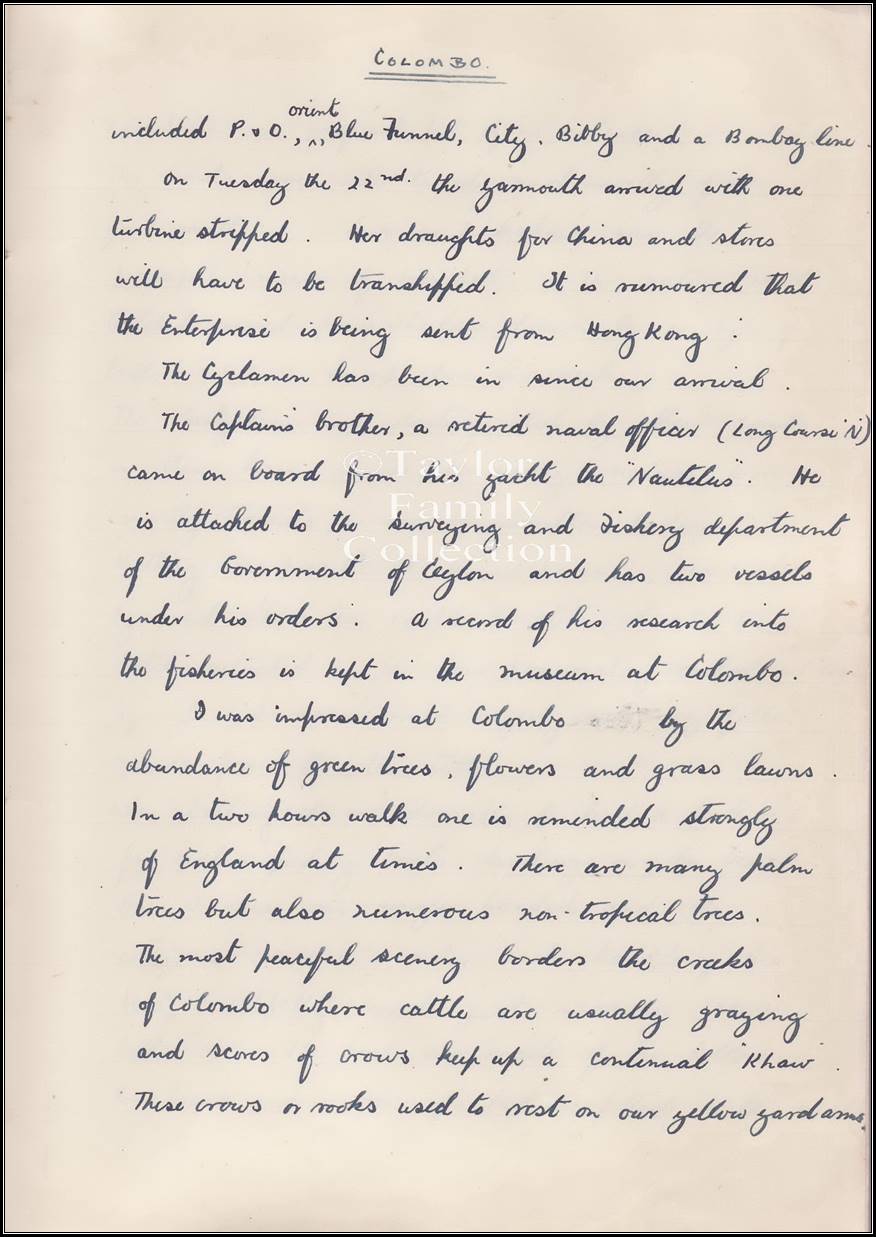 COLOMBO.
included P. & O., orient, Blue Funnel, City, Bibby and a Bombay line.
On Tuesday the 22nd. the Yarmouth arrived with one
turbine stripped. Her draughts for China and stores
will have to be transhipped. It is rumoured that
the Enterprise is being sent from Hong Kong.
The Cyclamen has been in since our arrival.
The Captain's brother, a retired naval officer (Long Course 'N')
came on board from his yacht the "Nautilus". He
is attached to the surveying and Fishery department
of the Government of Ceylon and has two vessels
under his orders. A record of his research into
the fisheries is kept in the museum at Colombo.
I was impressed at Colombo by the
abundance of green trees, flowers and grass lawns.
In a two hours walk one is reminded strongly
of England at times. There are many palm
trees but also numerous non-tropical trees.
The most peaceful scenery borders the creeks
of Colombo where cattle are usually grazing
and scores of crows keep up a continual "Khaw".
These crows or rooks used to rest on our yellow yard arms.
©Taylor
Family
Collection